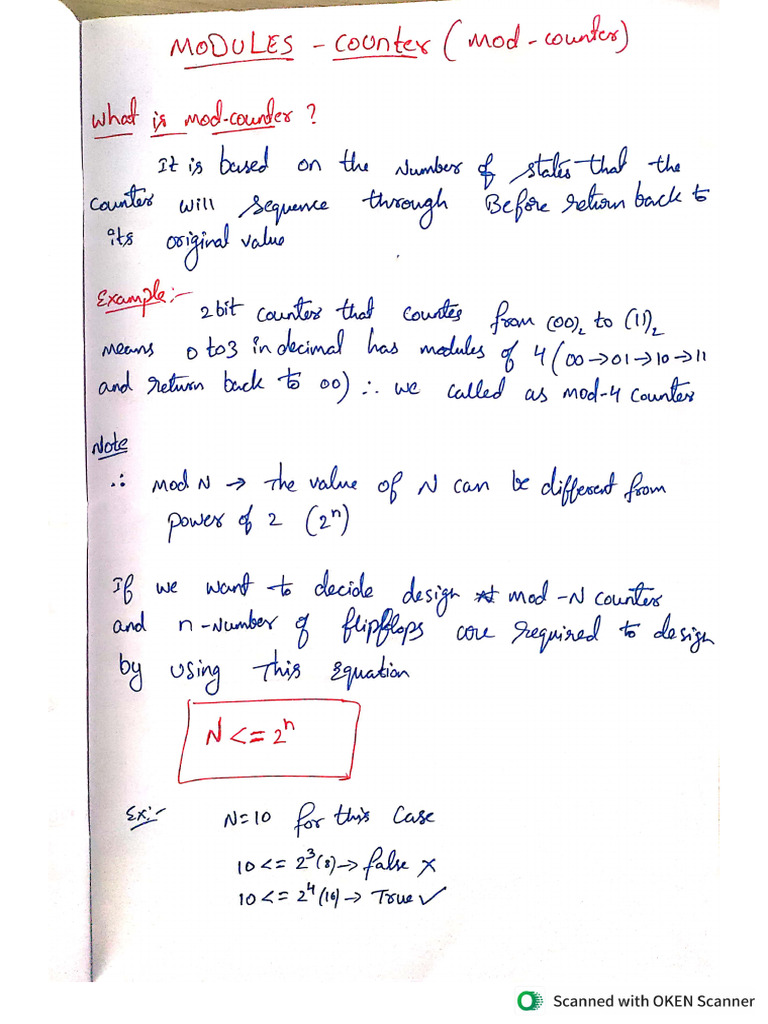 MODULES - Counter (mod-counter)
What is mod-counter ?
It is based on the Number of states that the
counter will sequence through Before return back to
its original value
Example:-
2bit counter that countes from (00)₂ to (11)₂
means 0 to 3 in decimal has modules of 4 (00→01→10→11
and return back to 00) ∴ we called as mod-4 counter
Note
∴ mod N → the value of N can be different from
power of 2 (2ⁿ)
If we want to decide design mod-N counter
and n-number of flipflops are required to design
by using this Equation
N <= 2ⁿ
Ex:- N=10 for this case
10 <= 2³(8) → false ×
10 <= 2⁴(16) → True ✓
Scanned with OKEN Scanner